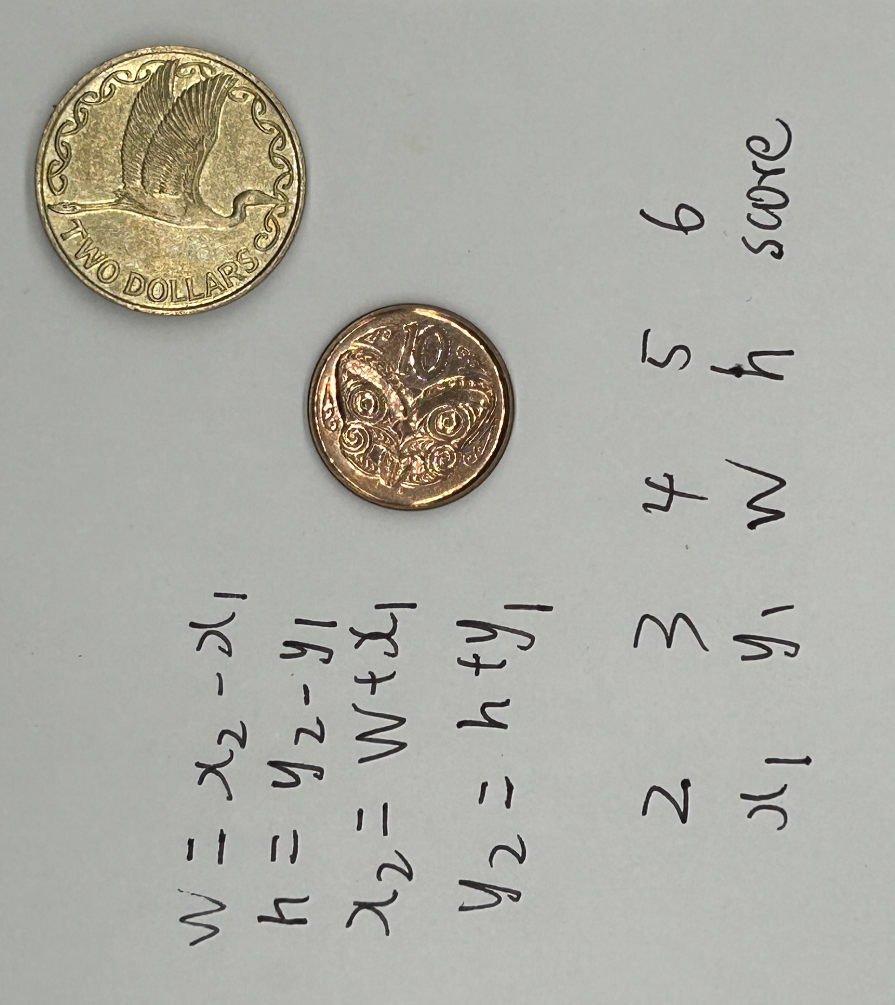 TWO DOLLARS
10
w = x₂ - x₁
h = y₂ - y₁
x₂ = w + x₁
y₂ = h + y₁
2 3 4 5 6
x₁ y₁ w h score